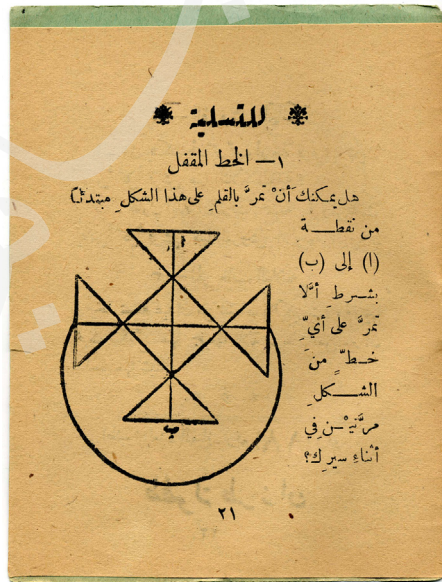 للتسلية
١ — الخط المقفل
هل يمكنك أنْ تمرَّ بالقلمِ على هذا الشكلِ مبتدئاً
من نقطــة
(ا) إلى (ب)
بشــرطِ ألَّا
تمرَّ على أيِّ
خــطٍّ مِنَ
الشــكلِ
مرَّتيْـن في
أثناءِ سيرِك؟
ا
ب
٢١